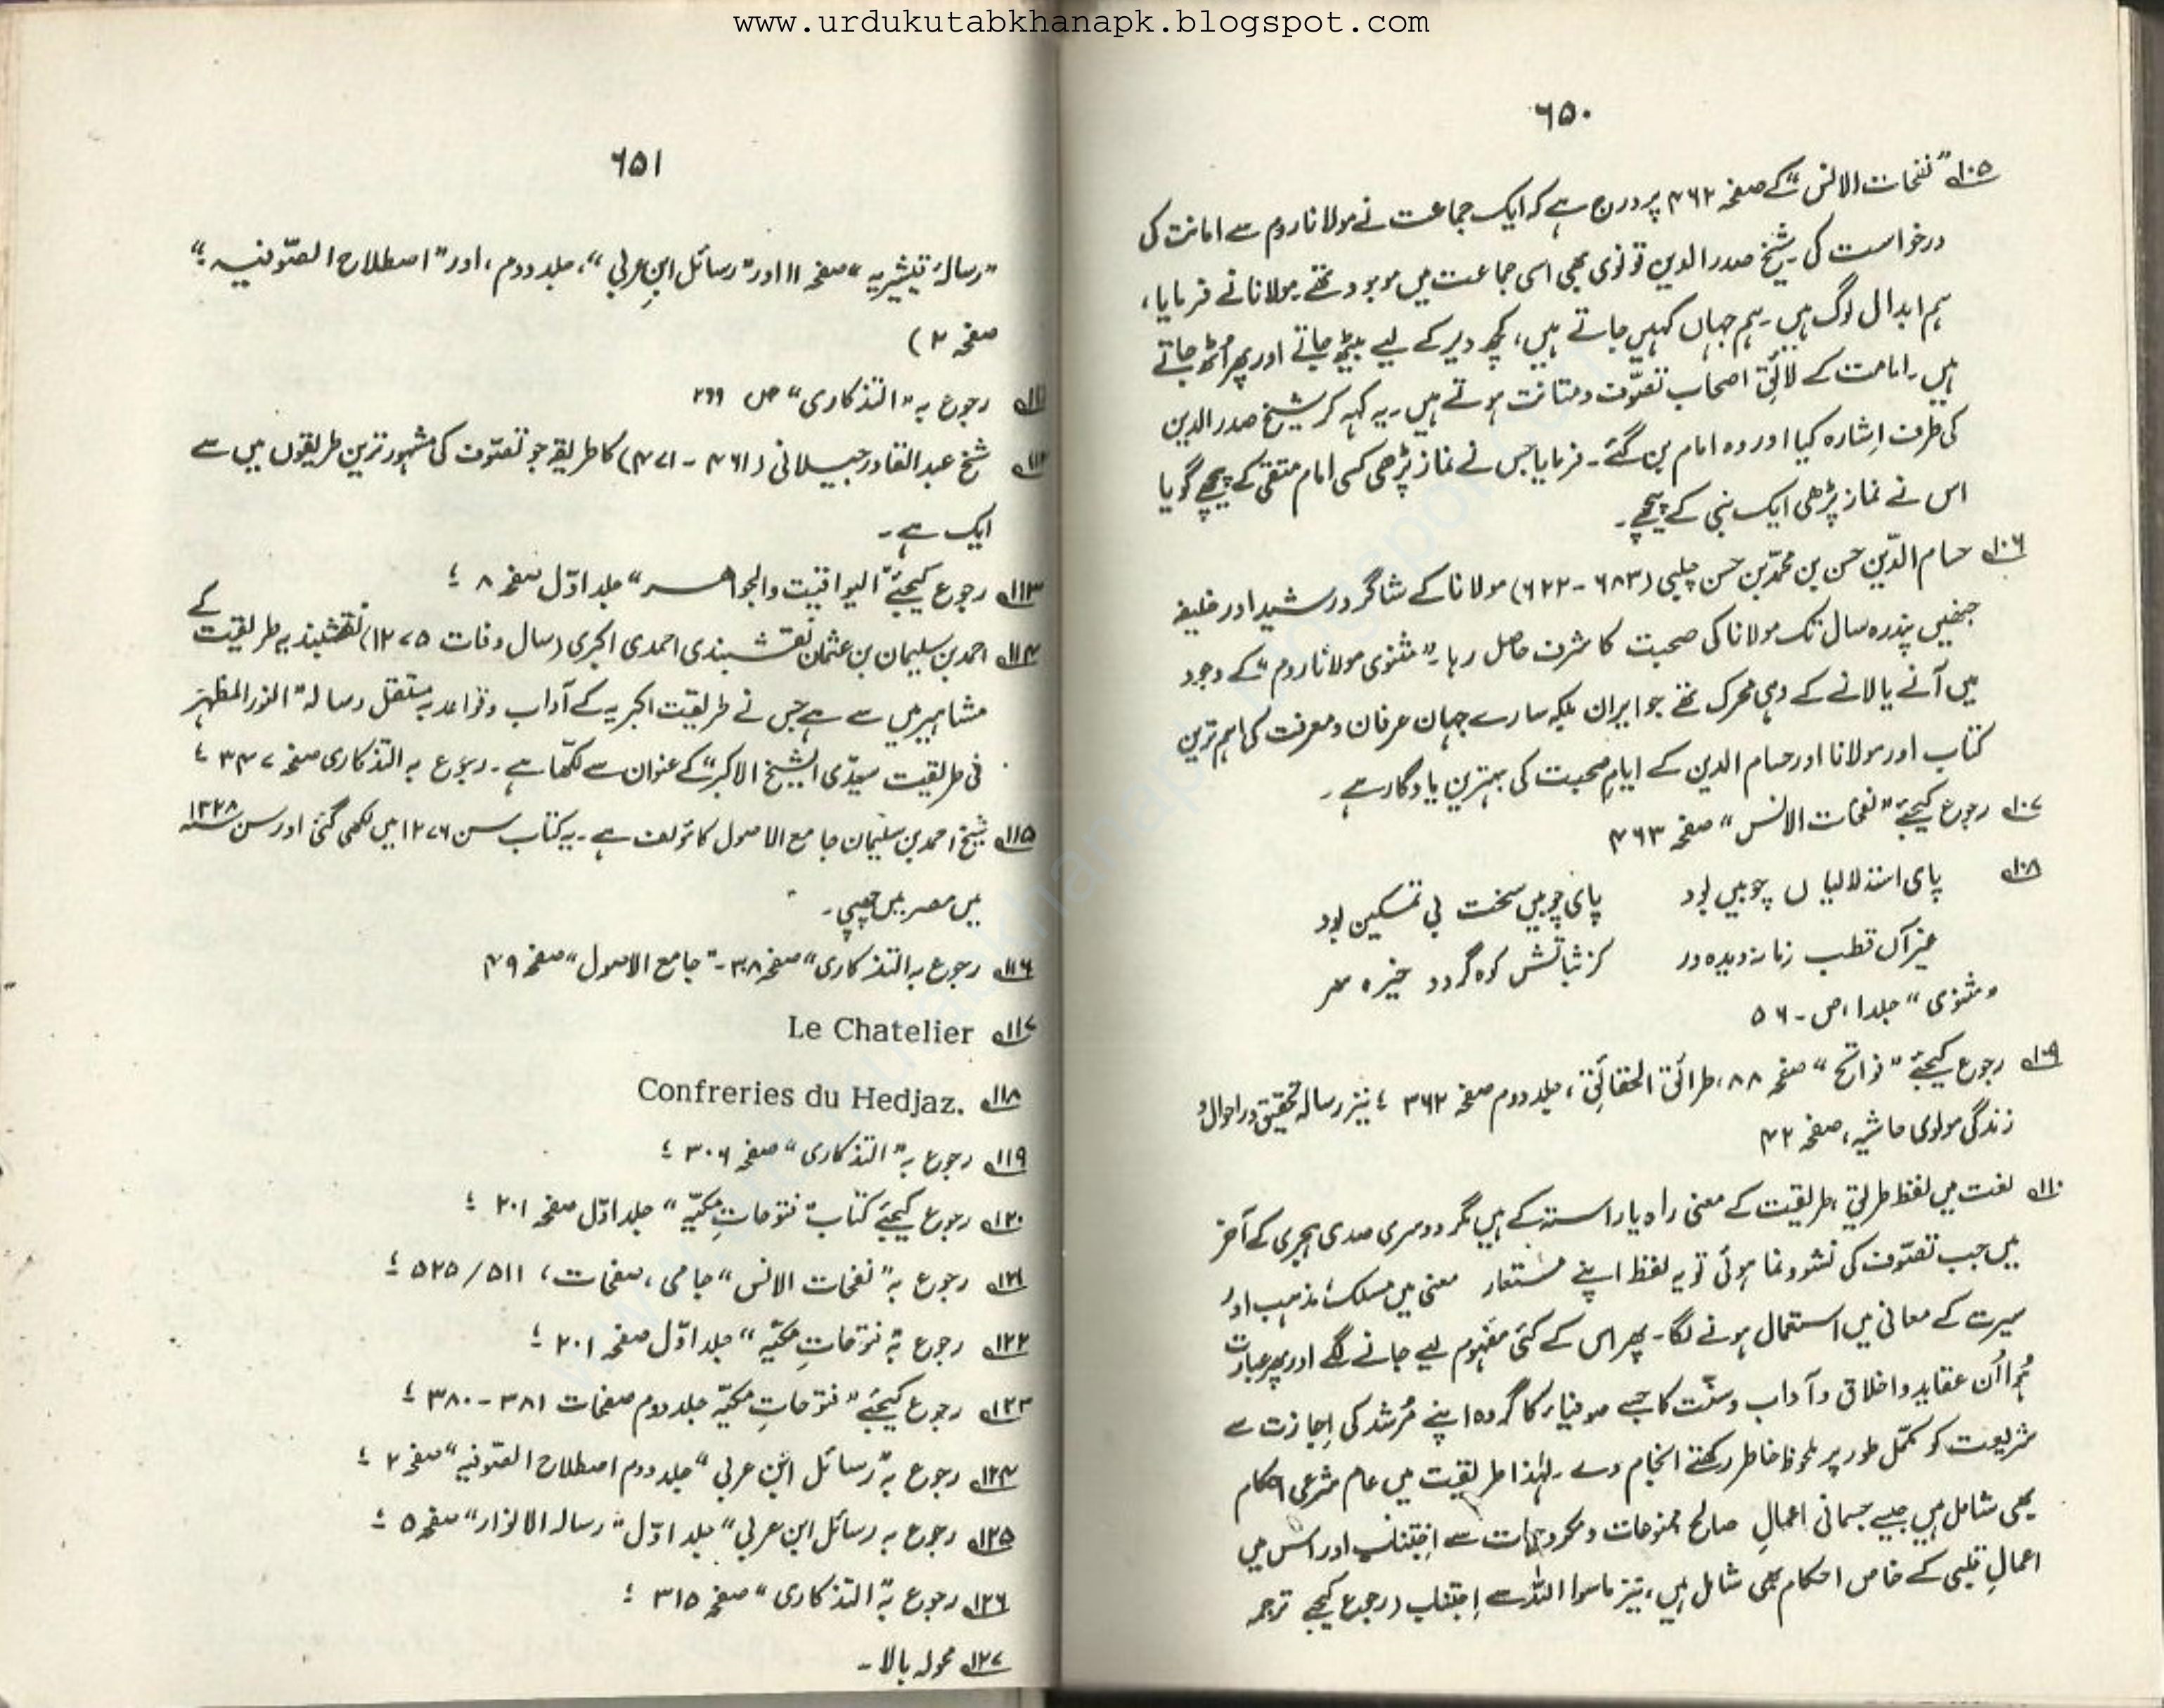 www.urdukutabkhanapk.blogspot.com
٦٥٠
١٠٥؎ ”نفحات الانس“ کے صفحہ ۴۶۲ پر درج ہے کہ ایک جماعت نے مولانا روم سے امامت کی
درخواست کی شیخ صدر الدین قونوی بھی اسی جماعت میں موجود تھے۔ مولانا نے فرمایا،
ہم ابدال لوگ ہیں۔ ہم جہاں کہیں جاتے ہیں، کچھ دیر کے لیے بیٹھ جاتے اور پھر اُٹھ جاتے
ہیں۔ امامت کے لائق اصحاب تصوّف و متانت ہوتے ہیں۔ یہ کہہ کر شیخ صدر الدین
کی طرف اِشارہ کیا اور وہ امام بن گئے۔ فرمایا جس نے نماز پڑھی کسی امام متقی کے پیچھے گویا
اس نے نماز پڑھی ایک نبی کے پیچھے۔
١٠٦؎ حسام الدّین حسن بن محمّد بن حسن چلپی (۶۸۳ - ۶۲۲) مولانا کے شاگرد رشید اور خلیفہ
جنھیں پندرہ سال تک مولانا کی صحبت کا شرف حاصل رہا۔ ”مثنوی مولانا روم“ کے وجود
میں آنے یا لانے کے وہی محرک تھے جو ایران بلکہ سارے جہان عرفان و معرفت کی اہم ترین
کتاب اور مولانا اور حسام الدین کے ایامِ صحبت کی بہترین یادگار ہے۔
١٠٧؎ رجوع کیجئے ”نفحات الانس“ صفحہ ۴۶۳
١٠٨؎ پای استدلالیاں چوبیں بود پای چوبیں سخت بی تمکین بود
غیر آں قطب زمان دیدہ ور کز ثباتش کوہ گردد خیرہ سر
”مثنوی“ جلد ا، ص - ۵۶
١٠٩؎ رجوع کیجئے ”فواتح“ صفحہ ۸۸، طرائق الحقائق، جلد دوم صفحہ ۳۶۲ ؛ نیز رسالہ تحقیق در احوال و
زندگی مولوی حاشیہ، صفحہ ۴۲
١١٠؎ لغت میں لفظ طریق، طریقیت کے معنی راہ یا راستہ کے ہیں مگر دوسری صدی ہجری کے آخر
میں جب تصوّف کی نشوونما ہوئی تو یہ لفظ اپنے مستعار معنی میں مسلک، مذہب اور
سیرت کے معانی میں استعمال ہونے لگا۔ پھر اس کے کئی مفہوم لیے جانے لگے اور پھر عبارت
ہُوا اُن عقاید و اخلاق و آداب و سنّت کا جسے صوفیاء کا گروہ اپنے مُرشد کی اِجازت سے
شریعت کو مکمّل طور پر ملحوظ خاطر رکھتے انجام دے۔ لہٰذا طریقیت میں عام شرعی احکام
بھی شامل ہیں جیسے جسمانی اعمالِ صالح ممنوعات و مکروہات سے اِجتناب اور اس میں
اعمالِ قلبی کے خاص احکام بھی شامل ہیں، نیز ماسوا اللہ سے اِجتناب (رجوع کیجے ترجمہ
٦٥١
”رسالۂ قیشریہ“ صفحہ ۱۱ اور ”رسائل ابنِ عربی“، جلد دوم، اور ”اصطلاح الصّوفیہ؛“
صفحہ ۲)
١١١؎ رجوع بہ ”التذکاری“ ص ۲۶۹
١١٢؎ شیخ عبد القادر جیلانی (۴۶۱ - ۴۷۱) کا طریقہ جو تصوّف کی مشہور ترین طریقوں میں سے
ایک ہے۔
١١٣؎ رجوع کیجئے ”الیواقیت والجواھر“ جلد اوّل صفحہ ۸ ؛
١١٤؎ احمد بن سلیمان بن عثمان نقشبندی احمدی اکبری (سال وفات ۱۲۷۵) نقشبندیہ طریقیت کے
مشاہیر میں سے ہے جس نے طریقیت اکبریہ کے آداب و قواعد پہ مستقل رسالہ ”النور المظہر
فی طریقیت سیّدی الشیخ الاکبر“ کے عنوان سے لکّھا ہے۔ رجوع بہ التذکاری صفحہ ۳۴۷ ؛
١١٥؎ شیخ احمد بن سلیمان جامع الاصول کا مؤلف ہے۔ یہ کتاب سن ۱۲۷۶ میں لکھی گئی اور سن ۱۳۲۸
میں مصر میں چھپی۔
١١٦؎ رجوع بہ التذکاری“ صفحہ ۳۰۸ - ”جامع الاصول“ صفحہ ۴۹
١١٧؎ Le Chatelier
١١٨؎ Confreries du Hedjaz.
١١٩؎ رجوع بہ ”التذکاری“ صفحہ ۳۰۶ ؛
١٢٠؎ رجوع کیجئے کتاب ”فتوحاتِ مکیّہ“ جلد اوّل صفحہ ۲۰۱ ؛
١٢١؎ رجوع بہ ”نفحات الانس“ جامی، صفحات، ۵۱۱/۵۲۵ ؛
١٢٢؎ رجوع بہ ”فتوحاتِ مکیّہ“ جلد اوّل صفحہ ۲۰۱ ؛
١٢٣؎ رجوع کیجئے ”فتوحاتِ مکیّہ جلد دوم صفحات ۳۸۱ - ۳۸۰ ؛
١٢٤؎ رجوع بہ ”رسائل ابن عربی“ جلد دوم اصطلاح الصّوفیہ“ صفحہ ۲ ؛
١٢٥؎ رجوع بہ رسائل ابن عربی“ جلد اوّل ”رسالہ الانوار“ صفحہ ۵ ؛
١٢٦؎ رجوع بہ ”التذکاری“ صفحہ ۳۱۵ ؛
١٢٧؎ محولہ بالا۔